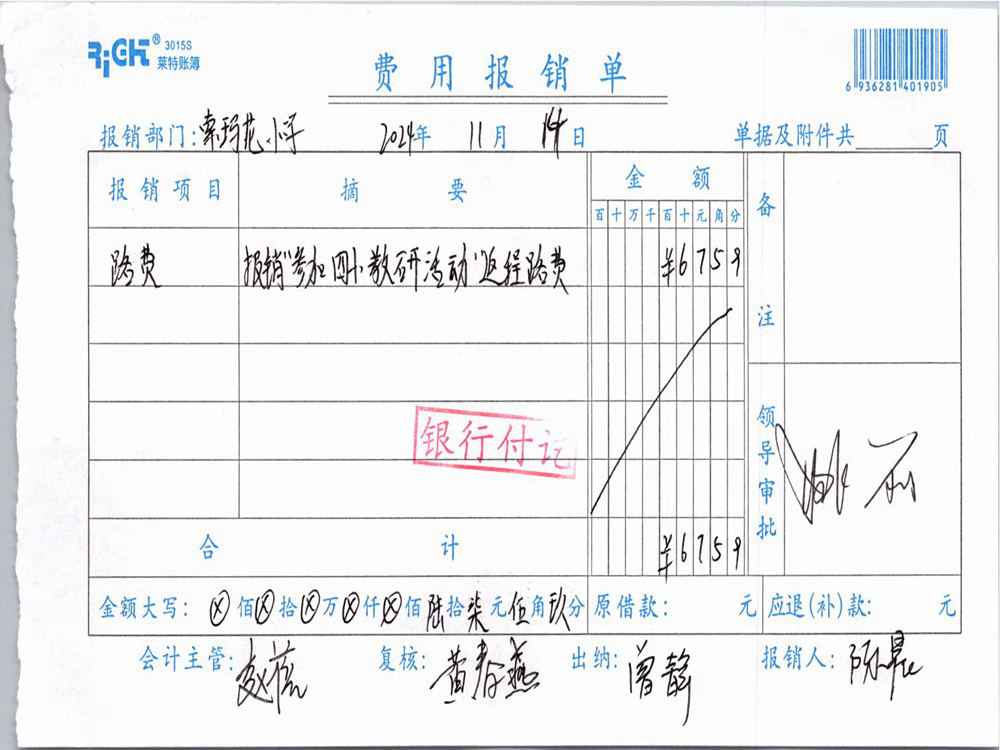 RiGHT® 3015S
莱特账簿
费用报销单
6 936281 401905
报销部门: 索玛花小学 2024年 11月 14日 单据及附件共 页
报销项目 摘要 金额 备注
百十万千百十元角分
路费 报销"参加四小教研活动"返程路费 ¥6759
银行付讫
领导审批
合计 ¥6759
金额大写: ⊗佰⊗拾⊗万⊗仟⊗佰陆拾柒元伍角玖分 原借款: 元 应退(补)款: 元
会计主管: 复核: 黄春燕 出纳: 曾静 报销人: